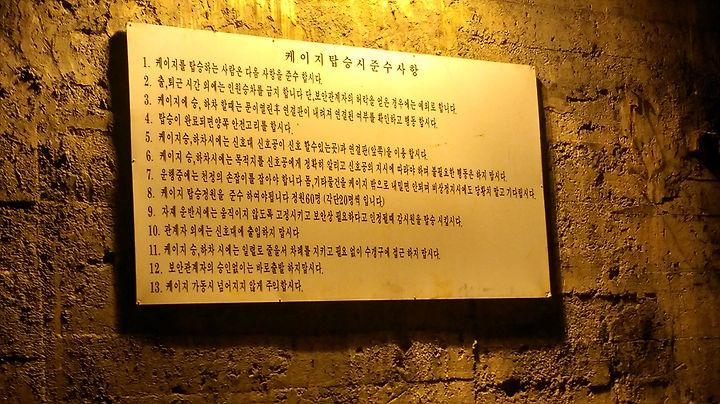 케이지탑승시준수사항
1. 케이지를 탑승하는 사람은 다음 사항을 준수 합시다.
2. 출,퇴근 시간 외에는 인원승차를 금지 합니다 단,보안관계자의 허락을 얻은 경우에는 예외로 합니다.
3. 케이지에 승, 하차 할때는 문이열린후 연결판이 내려져 연결된 여부를 확인하고 행동 합시다.
4. 탑승이 완료되면양쪽 안전고리를 합시다.
5. 케이지승,하차시에는 신호대 신호공이 신호 할수있는곳)과 연결판(앞쪽)을 이용 합시다.
6. 케이지 승,하차시에는 목적지를 신호공에게 정확히 알리고 신호공의 지시에 따라야 하며 불필요한 행동은 하지 맙시다.
7. 운행중에는 천정의 손잡이를 잡아야 합니다 몸,기타물건을 케이지 밖으로 내밀면 안되며 비상정지시에도 당황치 말고 기다립시다.
8. 케이지 탑승정원을 준수 하여야됩니다 정원60명 (각단20명씩 입니다)
9. 자재 운반시에는 움직이지 않도록 고정시키고 보안상 필요하다고 인정될때 감시원을 탑승 시킵시다.
10. 관계자 외에는 신호대에 출입하지 맙시다
11. 케이지 승,하차 시에는 일렬로 줄을서 차례를 지키고 필요 없이 수갱구에 접근 하지 맙시다.
12. 보안관계자의 승인없이는 바로출발 하지맙시다.
13. 케이지 가동시 넘어지지 않게 주의 합시다.